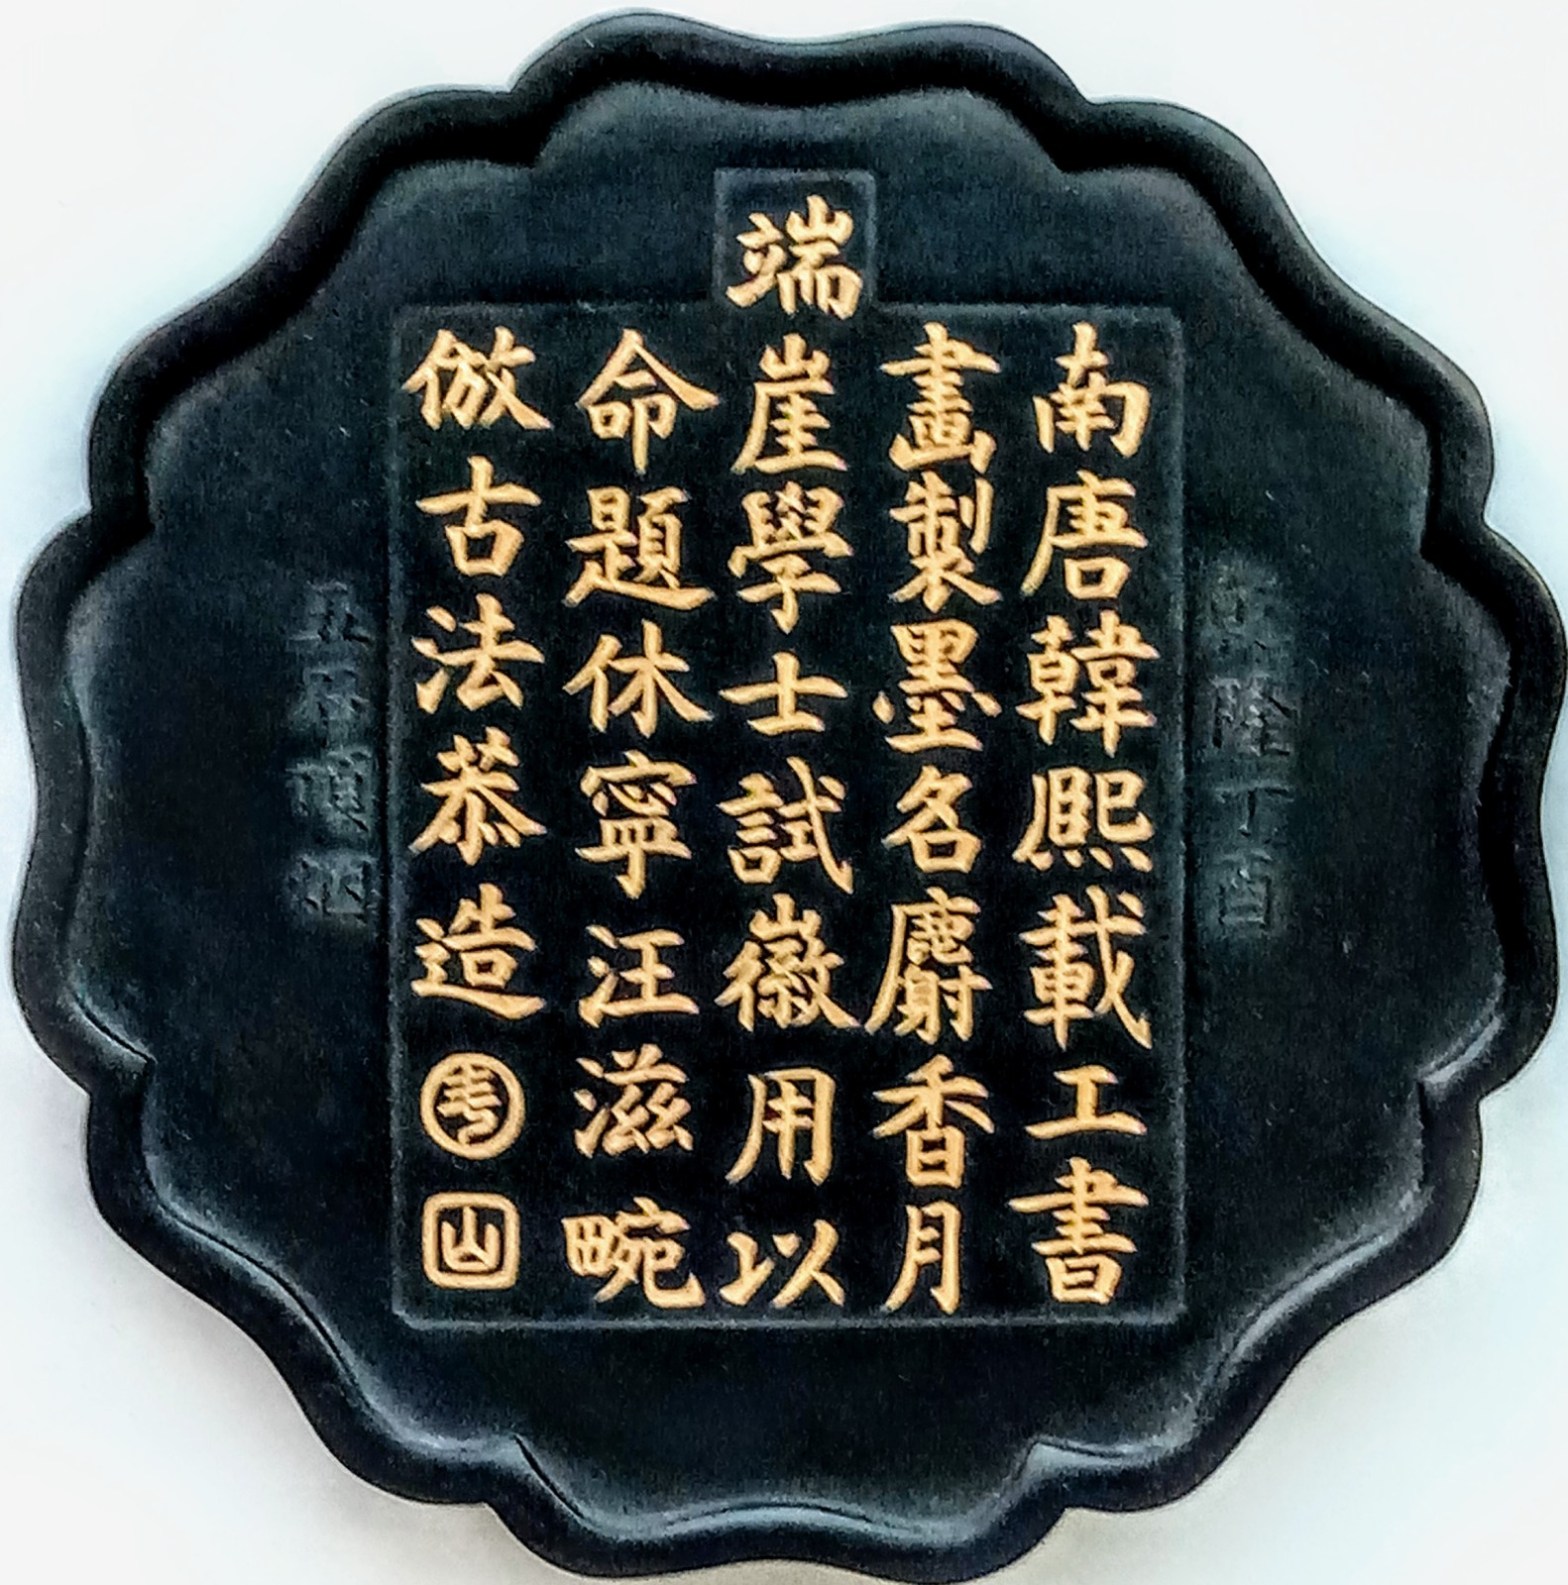 乾隆丁酉
南唐韓熙載工書
畫製墨名麝香月
端崖學士試徽用以
命題休寧汪滋畹
倣古法恭造
山